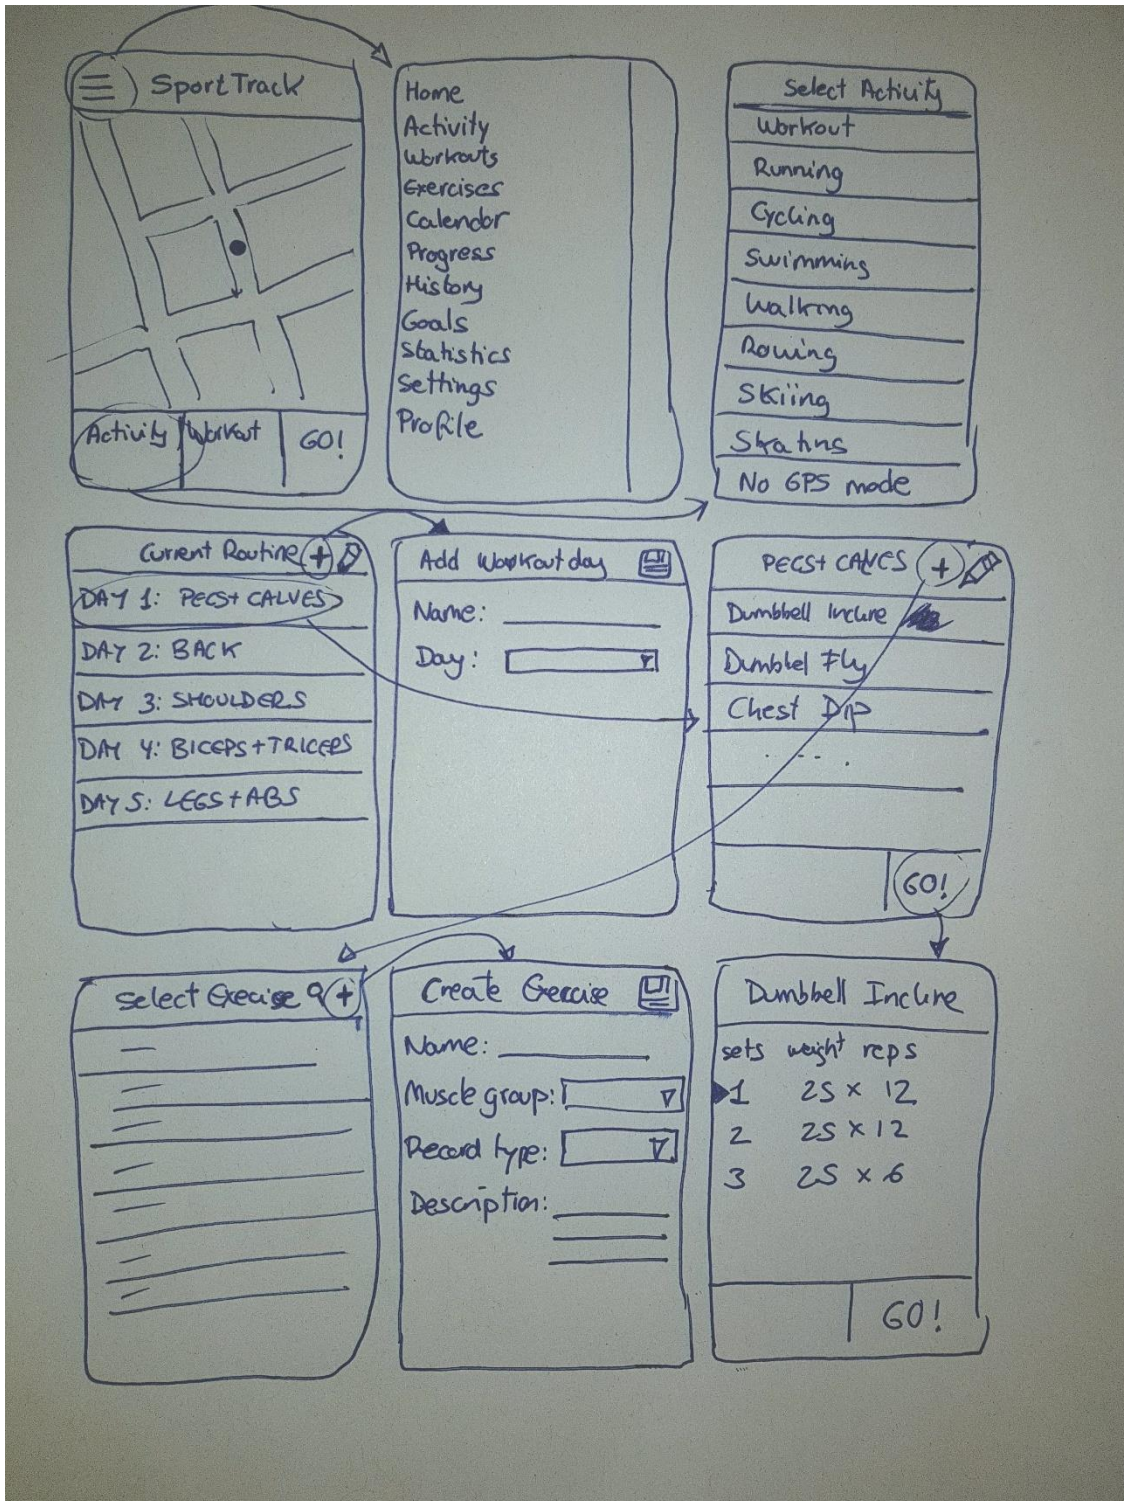 SportTrack
Activity
Workout
GO!
Home
Activity
Workouts
Exercises
Calendar
Progress
History
Goals
Statistics
Settings
Profile
Select Activity
Workout
Running
Cycling
Swimming
Walking
Rowing
Skiing
No GPS mode
Current Routine +
DAY 1: PECS+ CALVES
DAY 2: BACK
DAY 3: SHOULDERS
DAY 4: BICEPS+TRICEPS
DAY 5: LEGS+ABS
Add Workout day
Name:
Day:
PECS+ CALVES +
Dumbbell Incline
Dumbbel Fly
Chest Dip
GO!
Select Exercise +
Create Exercise
Name:
Muscle group:
Record type:
Description:
Dumbbell Incline
sets weight reps
1 25 x 12
2 25 x 12
3 25 x 6
GO!